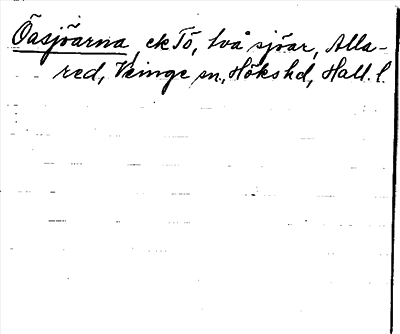 Öasjöarna, ek Tö, två sjöar, Alla-
red, Veinge sn., Höks hd, Hall. l.